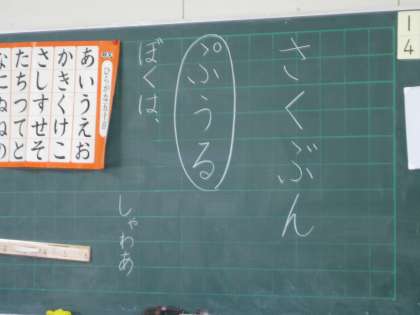 さくぶん
ぷうる
ぼくは、
しゃわあ
ひらがな五十音
あいうえお
かきくけこ
さしすせそ
たちつてと
なにぬねの
14